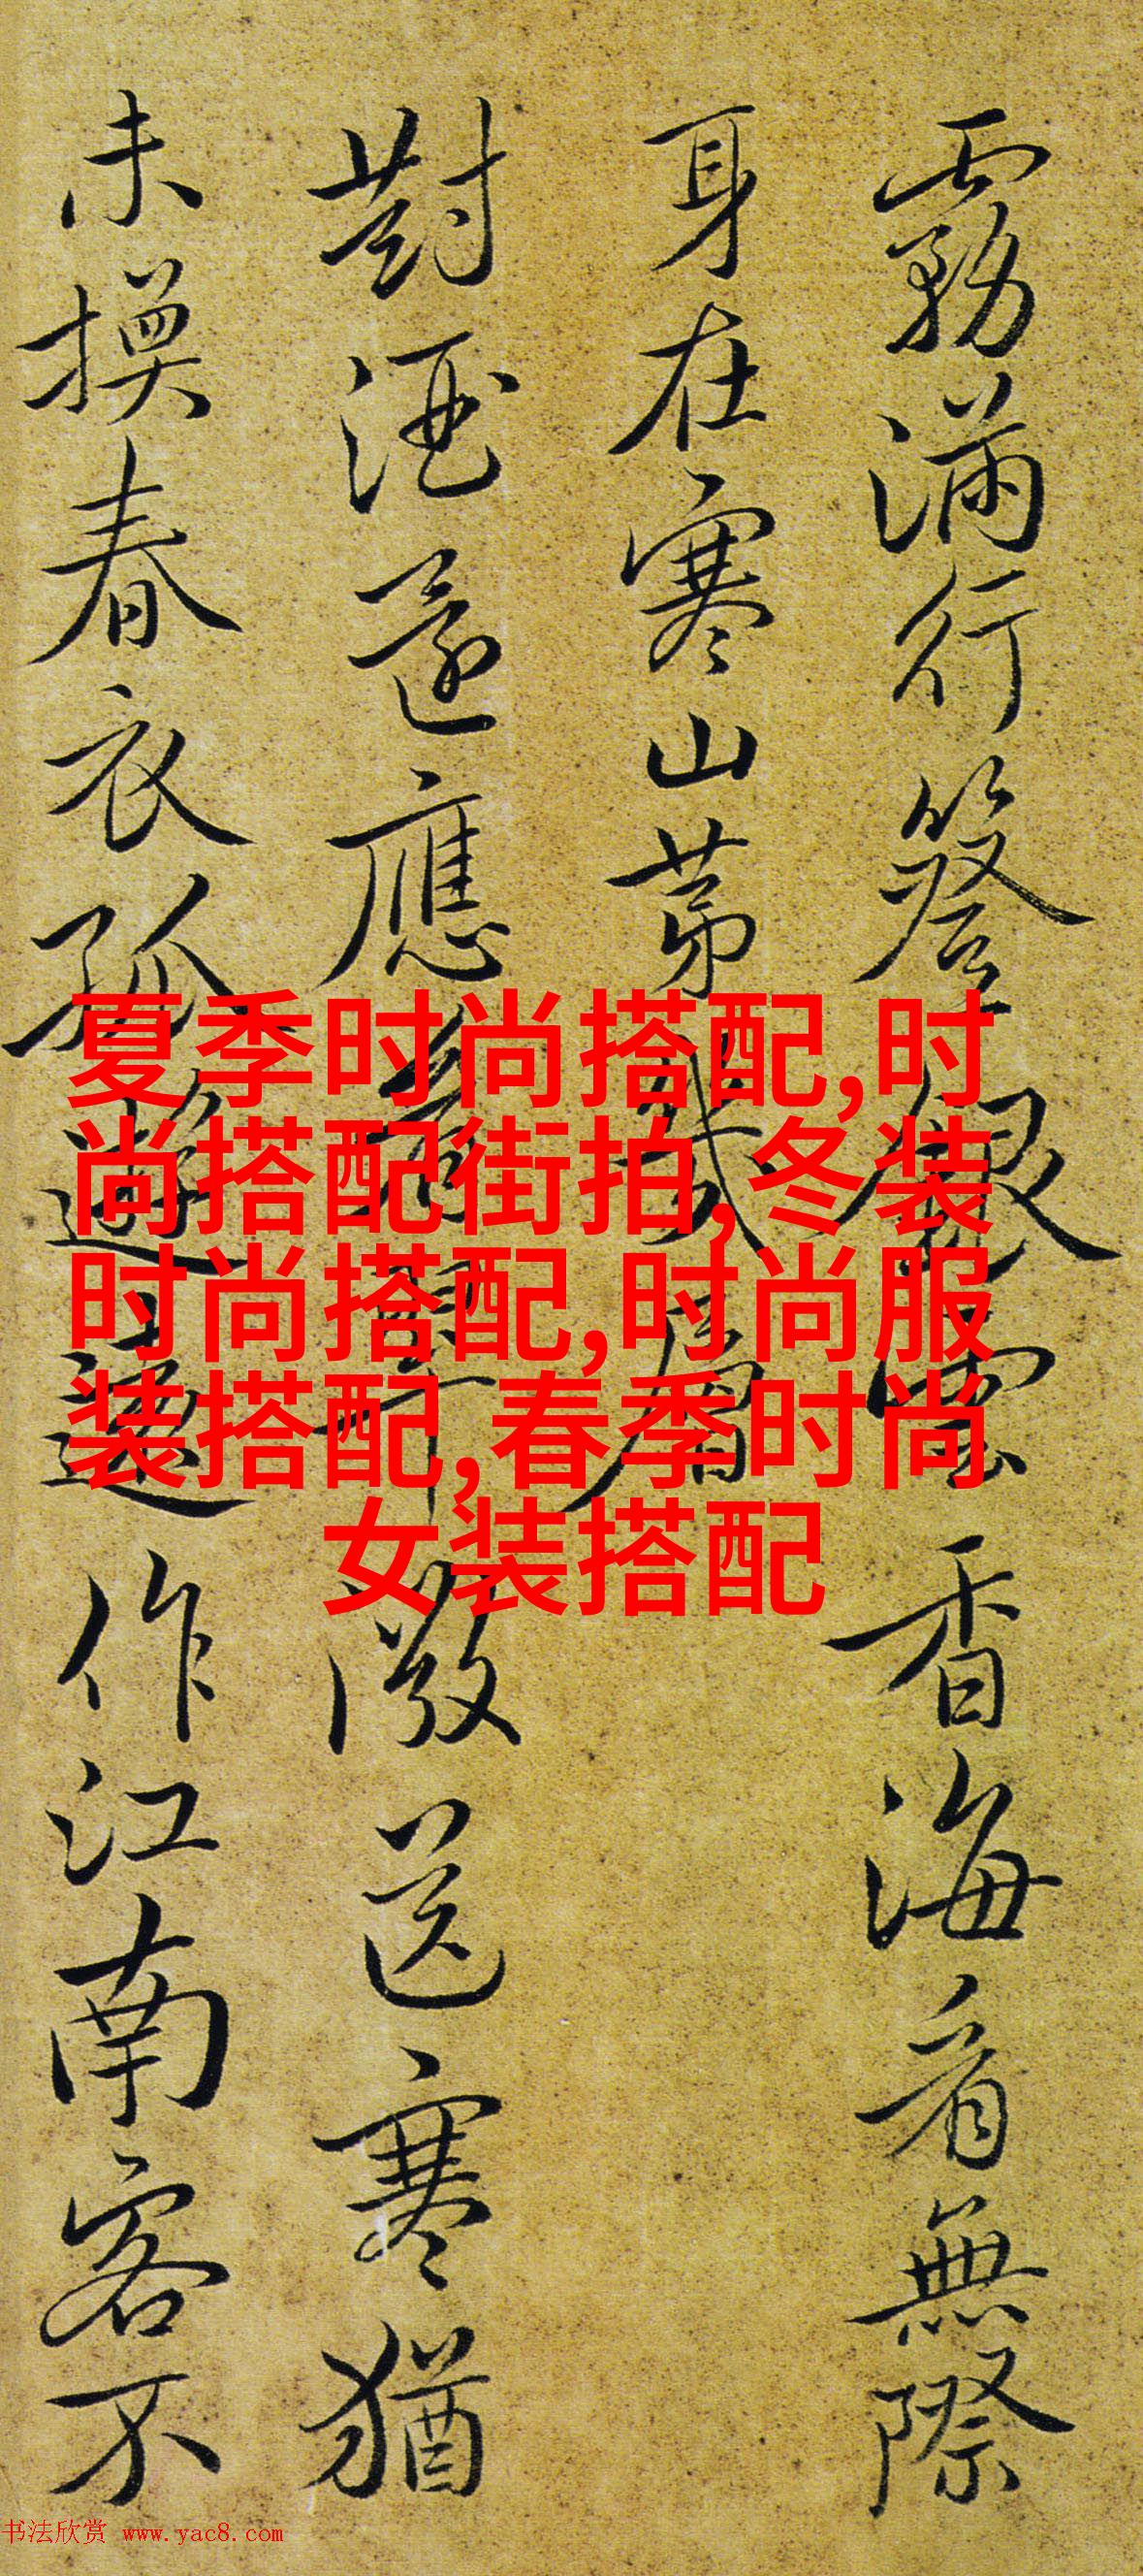 霧滿行簦銀香海看無際
身在寒山第幾層
對酒還應微送寒猶
未換春衣孤遊作江南客不
夏季时尚搭配,时
尚搭配街拍,冬装
时尚搭配,时尚服
装搭配,春季时尚
女装搭配
书法欣赏 www.yac8.com